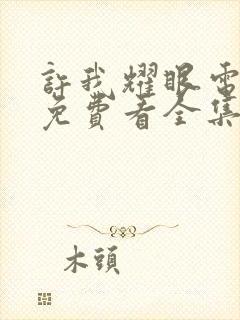 許我耀眼電
免費看全集
木頭